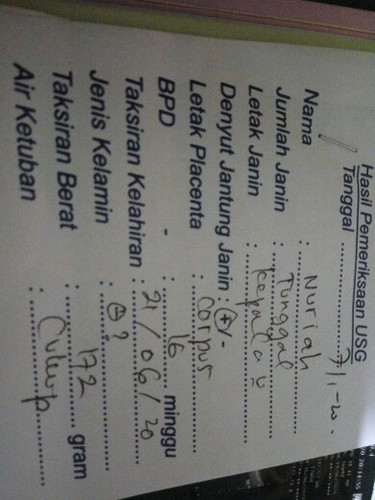 Hasil Pemeriksaan USG
Tanggal 7/1-20.
Nama : Nuriah
Jumlah Janin : Tunggal
Letak Janin : Kepala U
Denyut Jantung Janin : (+)/-
Letak Placenta : Corpus
BPD - : 16 minggu
Taksiran Kelahiran : 21/06/20
Jenis Kelamin : ?
Taksiran Berat : 172 gram
Air Ketuban : Cukup